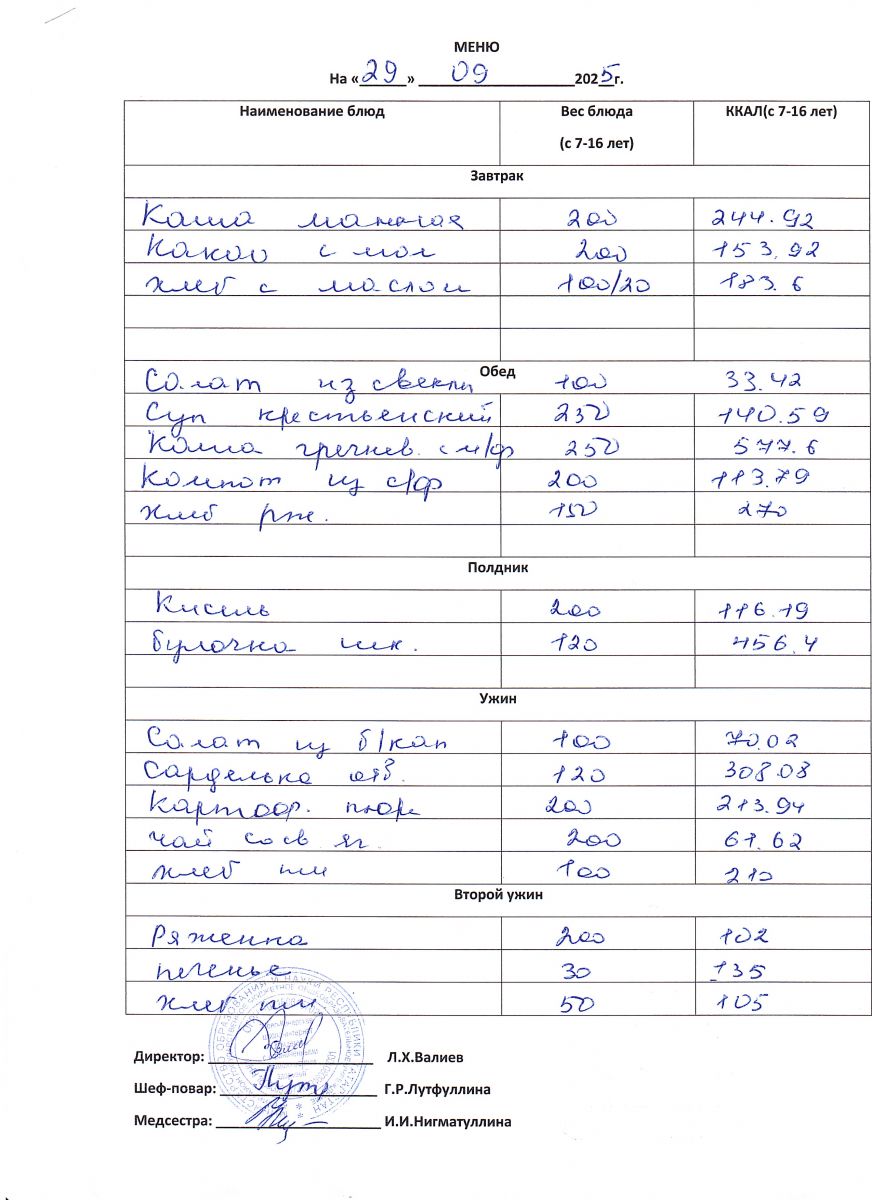 МЕНЮ
На «29» 09 2025г.
Наименование блюд Вес блюда (с 7-16 лет) ККАЛ(с 7-16 лет)
Завтрак
Каша манная 200 244.92
Какао с мол 200 153.92
хлеб с маслом 100/20 183.6
Обед
Салат из свеклы 100 33.42
Суп крестьенский 250 140.59
Каша гречнев. с м/ф 250 577.6
Компот из с/ф 200 113.79
хлеб рж. 150 270
Полдник
Кисель 200 116.19
булочка шк. 120 456.4
Ужин
Салат из б/кап 100 70.02
Сарделька отв. 120 308.08
Картоф. пюре 200 213.94
чай со св яг. 200 61.62
хлеб пш 100 210
Второй ужин
Ряженка 200 102
печенье 30 135
хлеб пш 50 105
Директор: Л.Х.Валиев
Шеф-повар: Г.Р.Лутфуллина
Медсестра: И.И.Нигматуллина